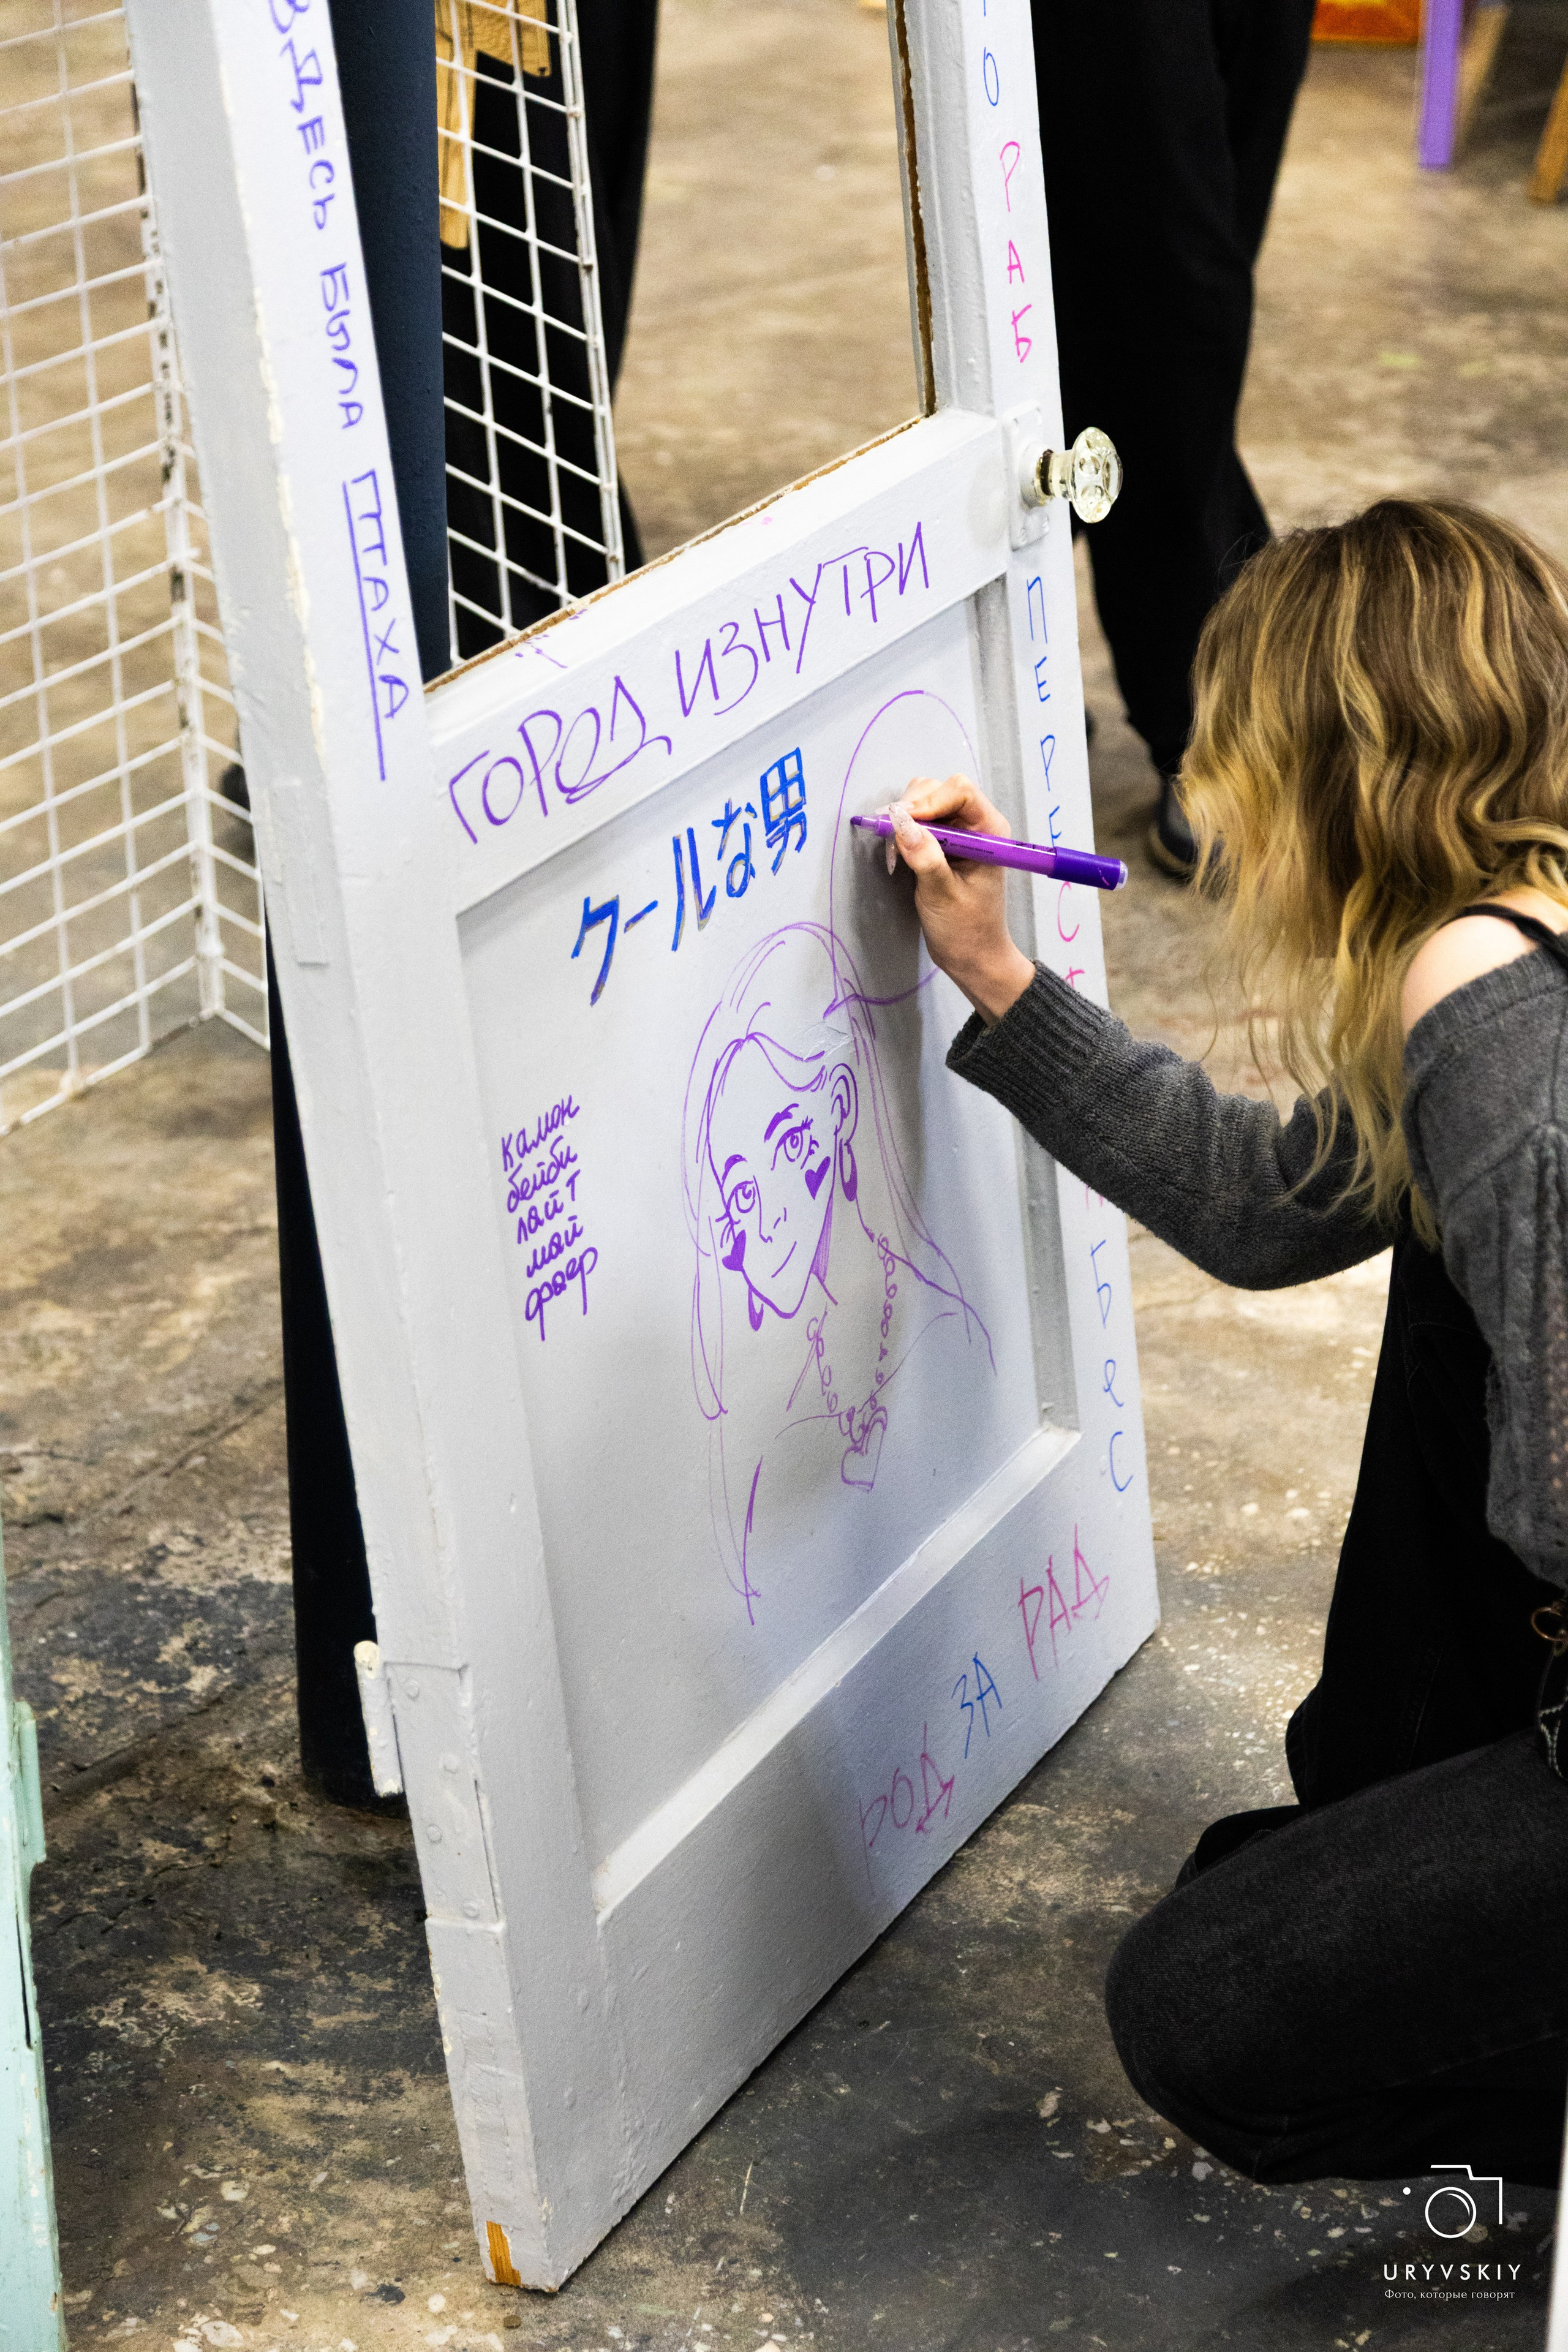 ЗДЕСЬ БЫЛА ПТАХА
ГОРОД ИЗНУТРИ
クールな男
Камон
бейби
лайт
май
фаер
РАБ
РОД ЗА РАД
URYVSKIY
Фото, которые говорят